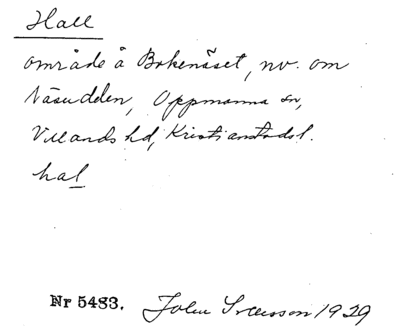 Hall
område å Bokenäset, nv. om
Näsudden, Oppmanna sn,
Villands hd, Kristianstads l.
hal
Nr 5483. John Svensson 1929